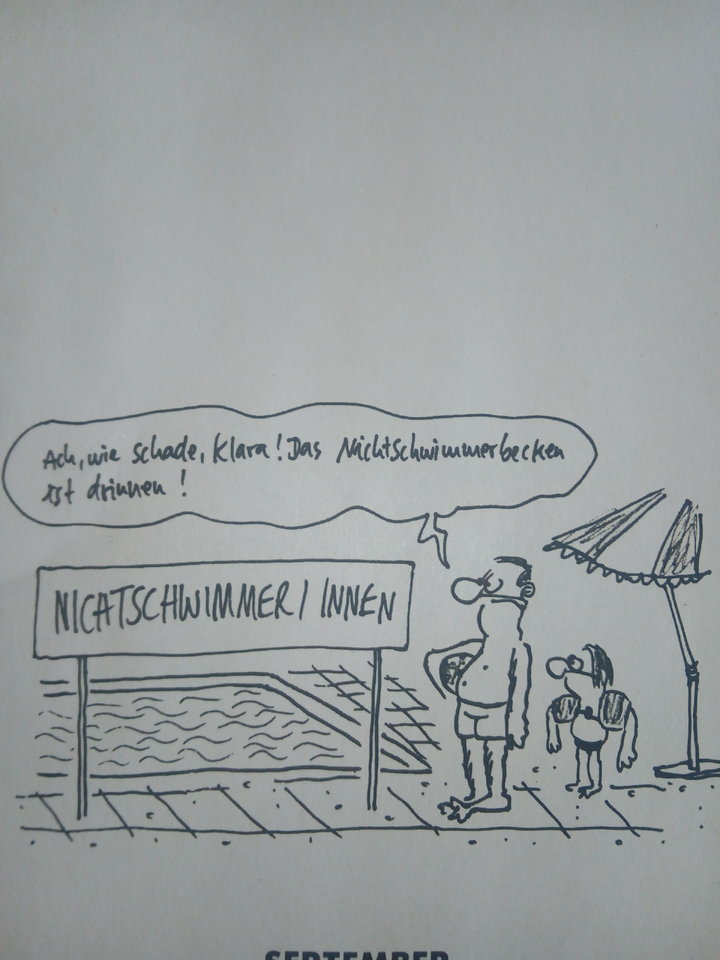 Ach, wie schade, Klara! Das Nichtschwimmerbecken
ist drinnen!
NICHTSCHWIMMER/INNEN
SEPTEMBER